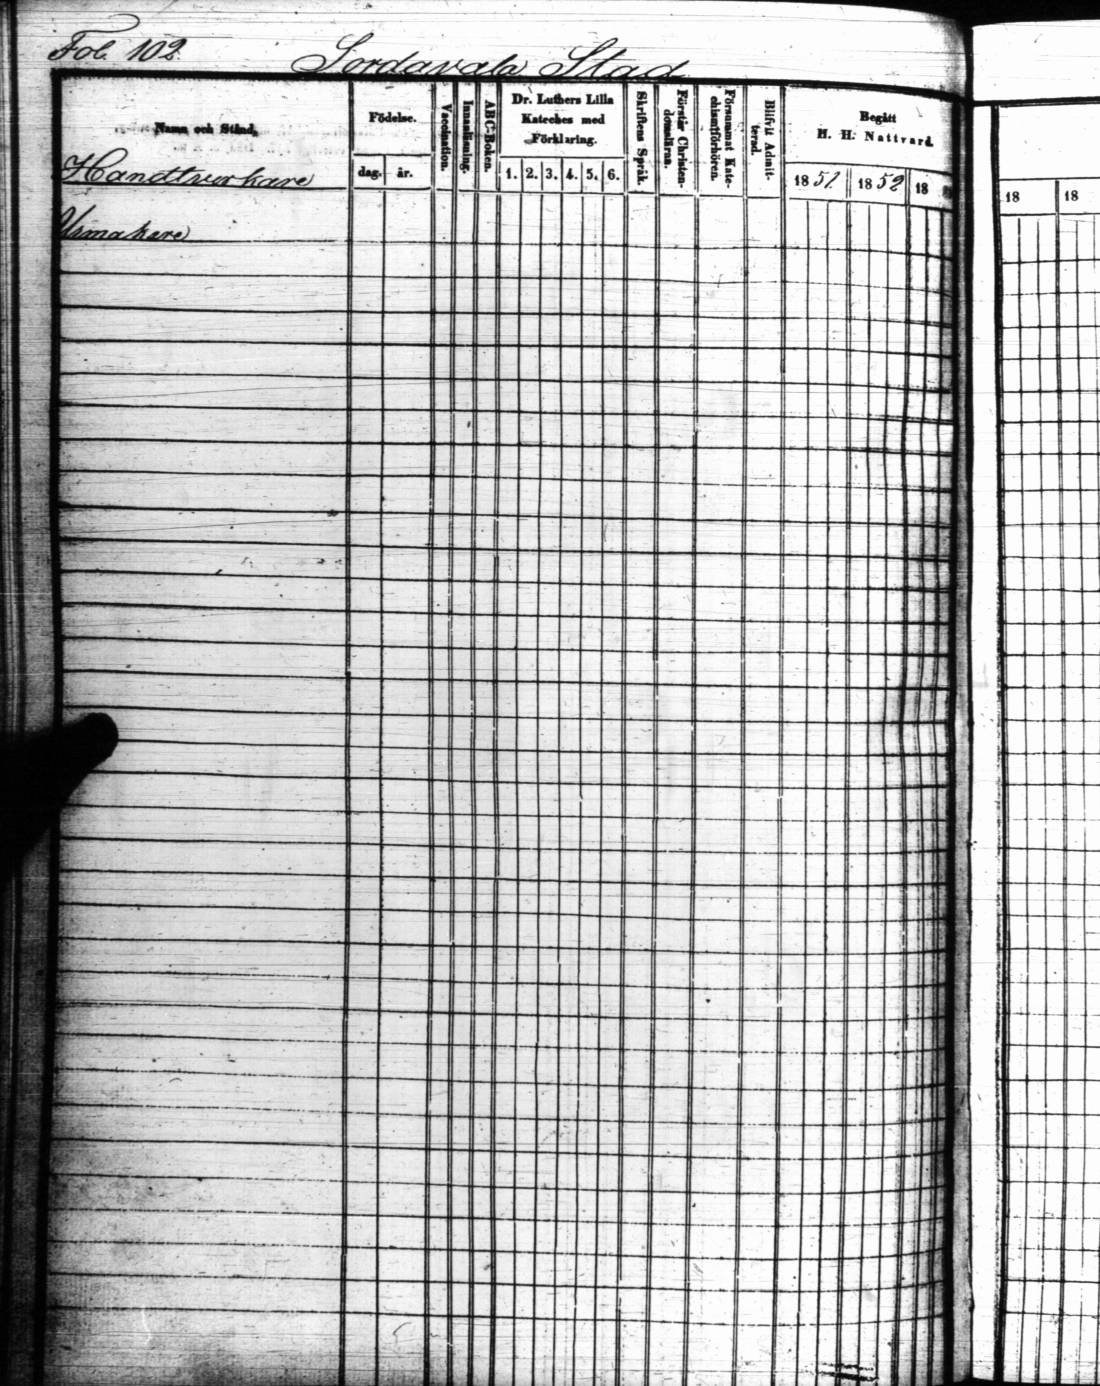 Fol. 102
Sordavala Stad
Namn och Stånd.
Födelse.
Vaccination.
Innanläsning.
ABC-Boken.
Dr. Luthers Lilla
Kateches med
Förklaring.
Skriftens Språk.
Förstår Christen-
domsläran.
Försummat Kate-
chismiförhören.
Blifvit Admit-
terad.
Begått
H. H. Nattvard.
Handtverkare
dag. år.
1. 2. 3. 4. 5. 6.
1851 1852 18
18 18
Urmakare